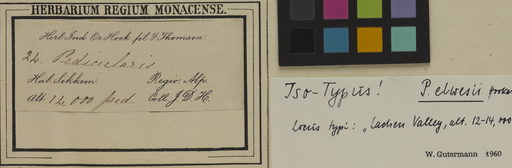 HERBARIUM REGIUM MONACENSE.
Herb. Ind. Or. Hook. fil. & Thomson.
24. Pedicularis
Hab. Sikkim Regio. Alp.
Alt. 12,000 ped. Coll. J. D. H.
Iso-Typus! P. elwesii
Locus typi: „Lachen Valley, alt. 12-14,000
W. Gutermann 1960